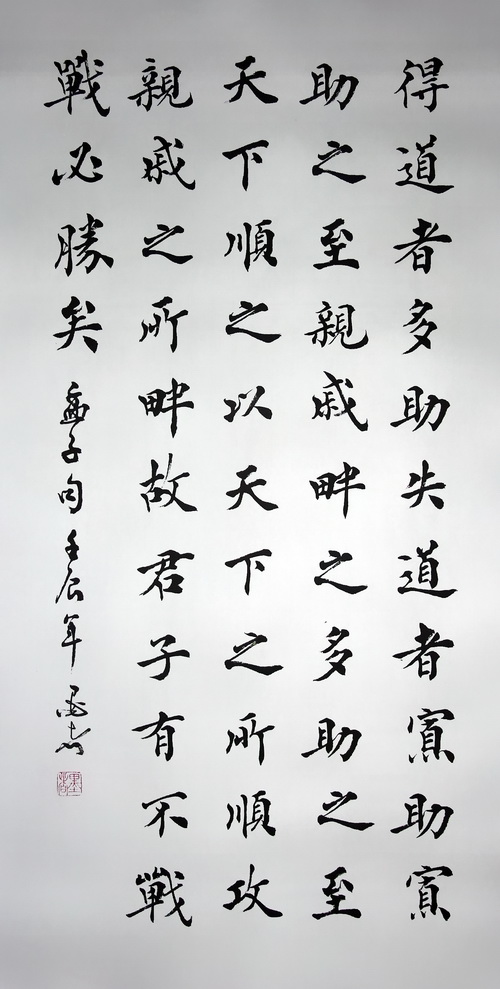 得道者多助失道者寡助寡
助之至親戚畔之多助之至
天下順之以天下之所順攻
親戚之所畔故君子有不戰
戰必勝矣 孟子句 壬辰年